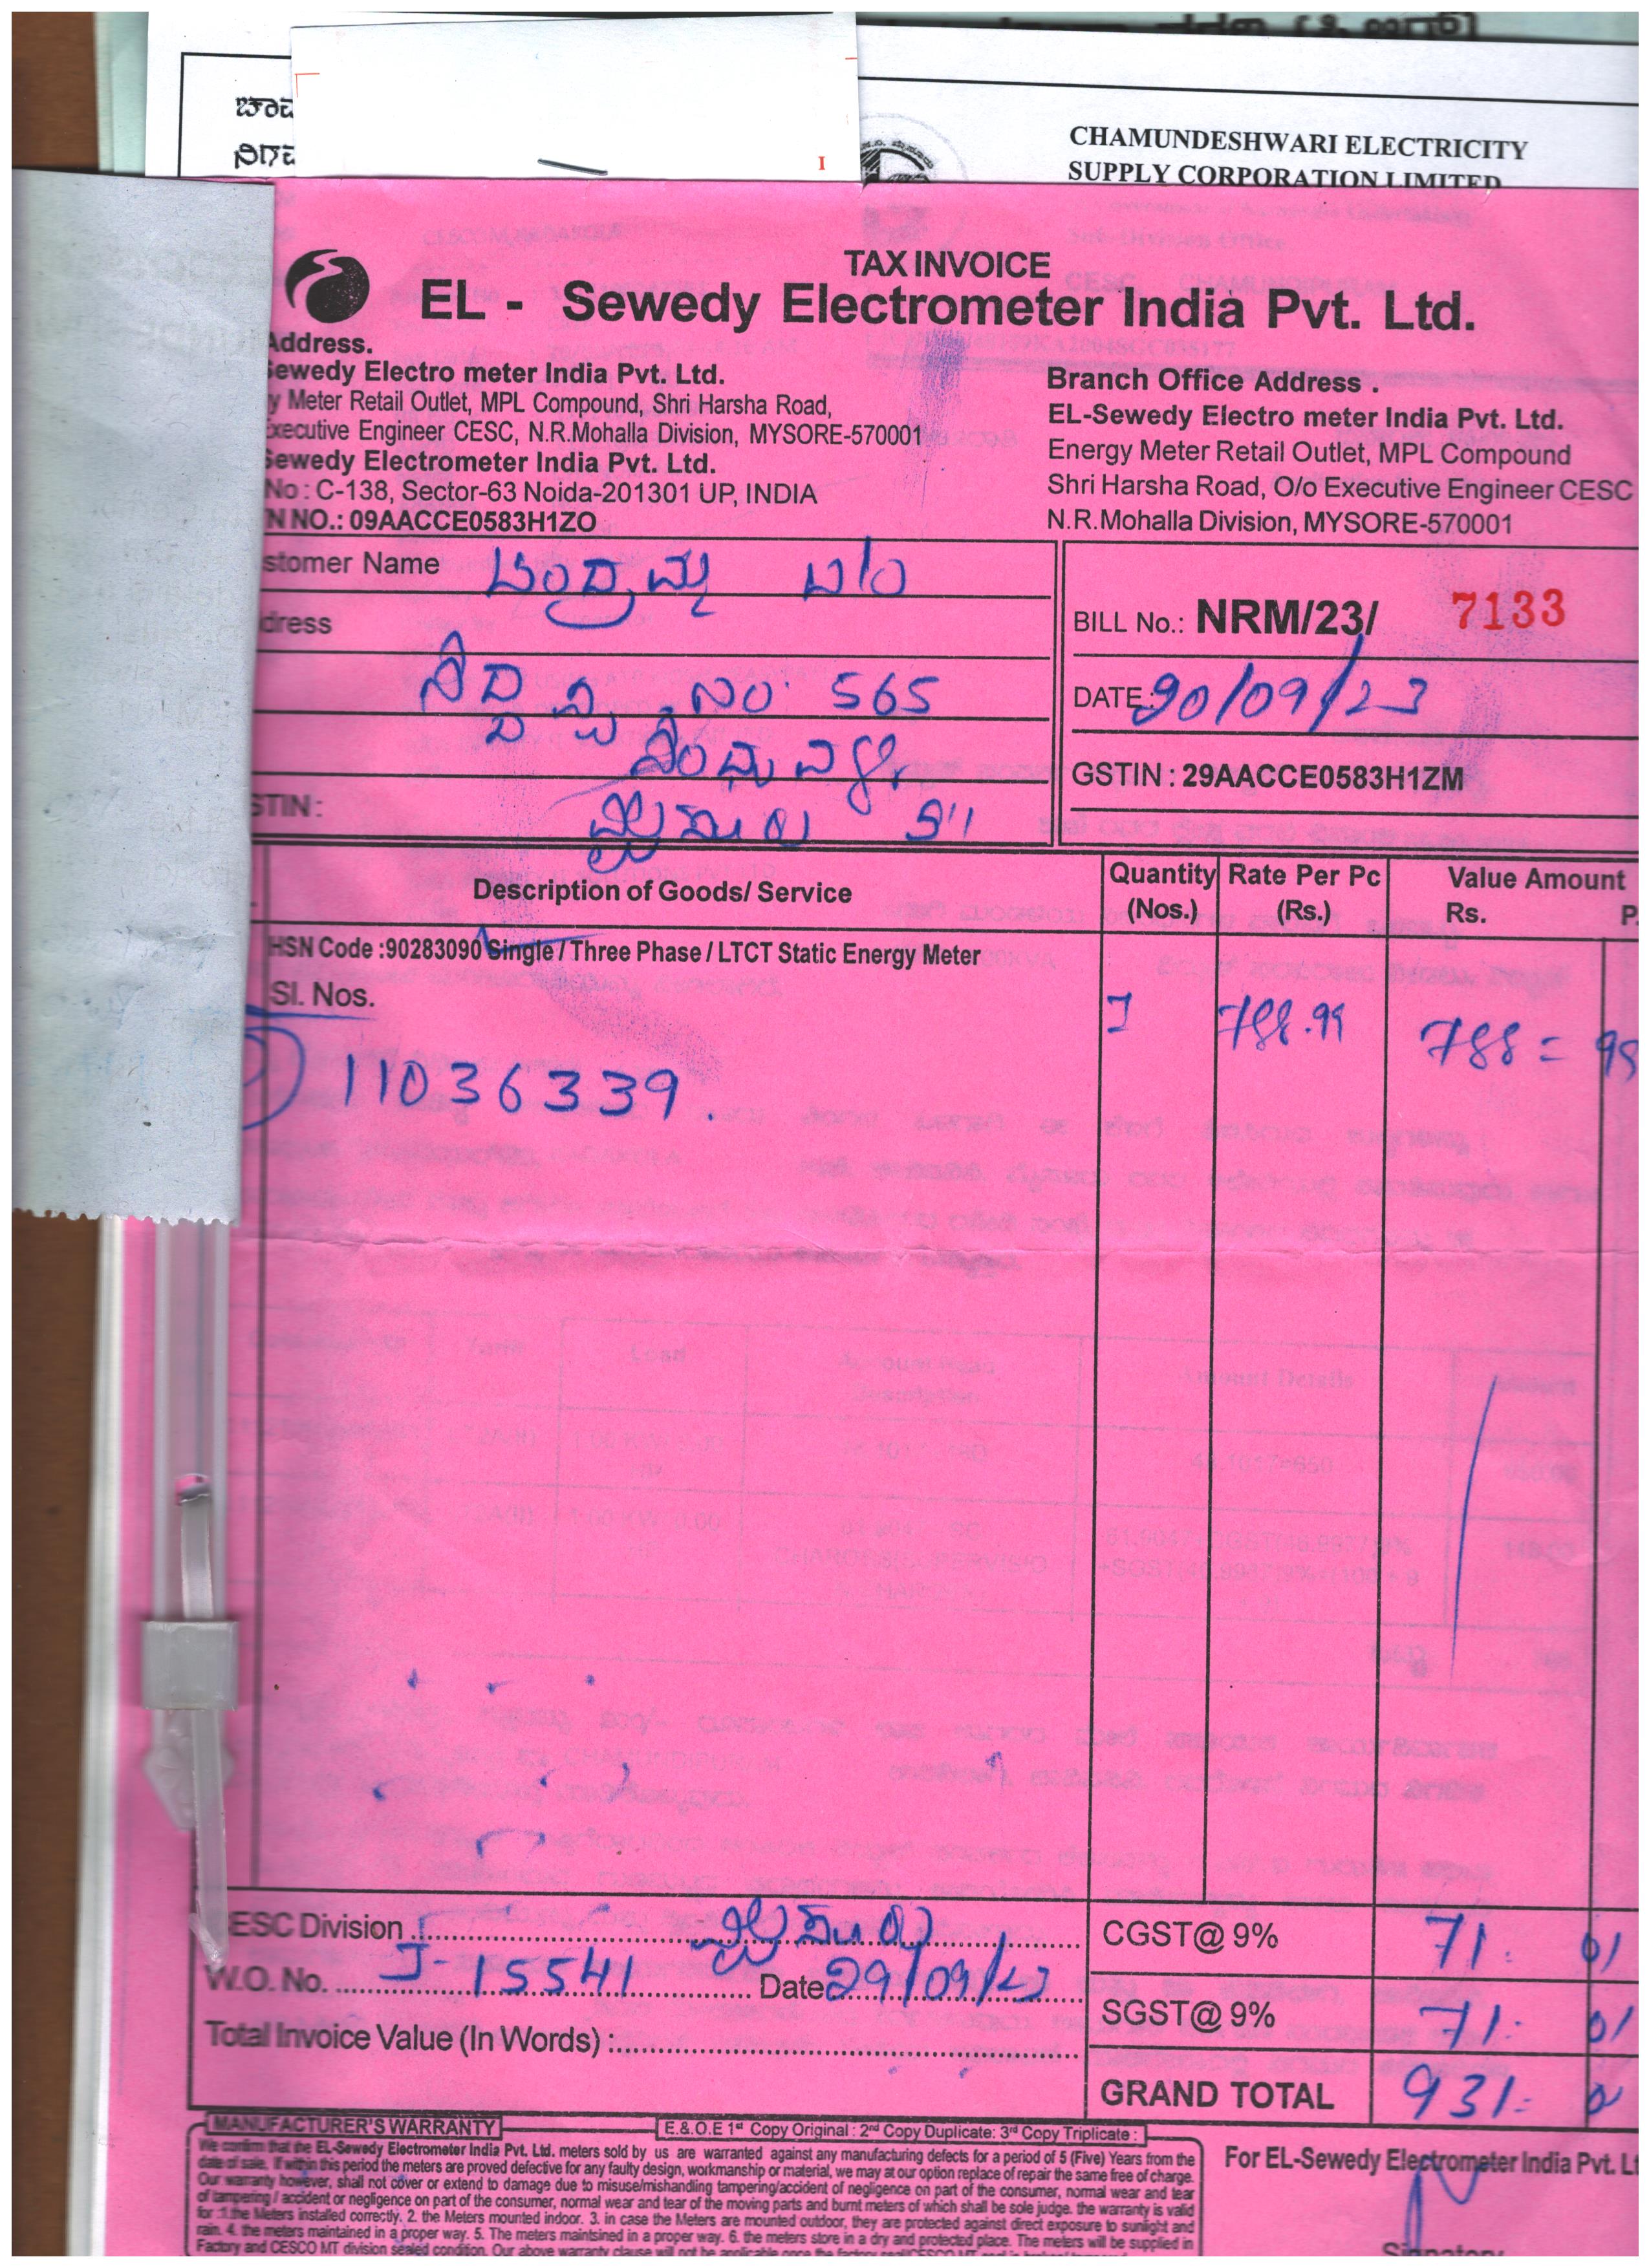 CHAMUNDESHWARI ELECTRICITY
SUPPLY CORPORATION LIMITED
TAX INVOICE
EL - Sewedy Electrometer India Pvt. Ltd.
Address.
Sewedy Electro meter India Pvt. Ltd.
y Meter Retail Outlet, MPL Compound, Shri Harsha Road,
Executive Engineer CESC, N.R.Mohalla Division, MYSORE-570001
Sewedy Electrometer India Pvt. Ltd.
No : C-138, Sector-63 Noida-201301 UP, INDIA
N NO.: 09AACCE0583H1ZO
Branch Office Address .
EL-Sewedy Electro meter India Pvt. Ltd.
Energy Meter Retail Outlet, MPL Compound
Shri Harsha Road, O/o Executive Engineer CESC
N.R.Mohalla Division, MYSORE-570001
stomer Name ಚಂದ್ರಮ್ಮ
dress
ಸಿದ್ದಪ್ಪ ನಂ 565
ಸಿಂಧುವಳ್ಳಿ
STIN : ಮೈಸೂರು
BILL No.: NRM/23/ 7133
DATE: 30/09/23
GSTIN : 29AACCE0583H1ZM
Description of Goods/ Service Quantity (Nos.) Rate Per Pc (Rs.) Value Amount Rs. P.
HSN Code :90283090 Single / Three Phase / LTCT Static Energy Meter
Sl. Nos. 1 788.99 788 = 99
11036339.
ESC Division ಮೈಸೂರು
W.O. No. J-15541 Date 29/09/23
Total Invoice Value (In Words) :
CGST@ 9% 71 01
SGST@ 9% 71 01
GRAND TOTAL 931
MANUFACTURER'S WARRANTY
E.& O.E 1st Copy Original : 2nd Copy Duplicate: 3rd Copy Triplicate :
We confirm that the EL-Sewedy Electrometer India Pvt. Ltd. meters sold by us are warranted against any manufacturing defects for a period of 5 (Five) Years from the
date of sale. If within this period the meters are proved defective for any faulty design, workmanship or material, we may at our option replace of repair the same free of charge.
Our warranty however, shall not cover or extend to damage due to misuse/mishandling tampering/accident of negligence on part of the consumer, normal wear and tear
of tampering / accident or negligence on part of the consumer, normal wear and tear of the moving parts and burnt meters of which shall be sole judge. the warranty is valid
for :1.the Meters installed correctly. 2. the Meters mounted indoor. 3. in case the Meters are mounted outdoor, they are protected against direct exposure to sunlight and
rain. 4. the meters maintained in a proper way. 5. The meters maintsined in a proper way. 6. the meters store in a dry and protected place. The meters will be supplied in
Factory and CESCO MT division sealed condition. Our above warranty clause will not be applicable once the factory
For EL-Sewedy Electrometer India Pvt. Lt
Signatory